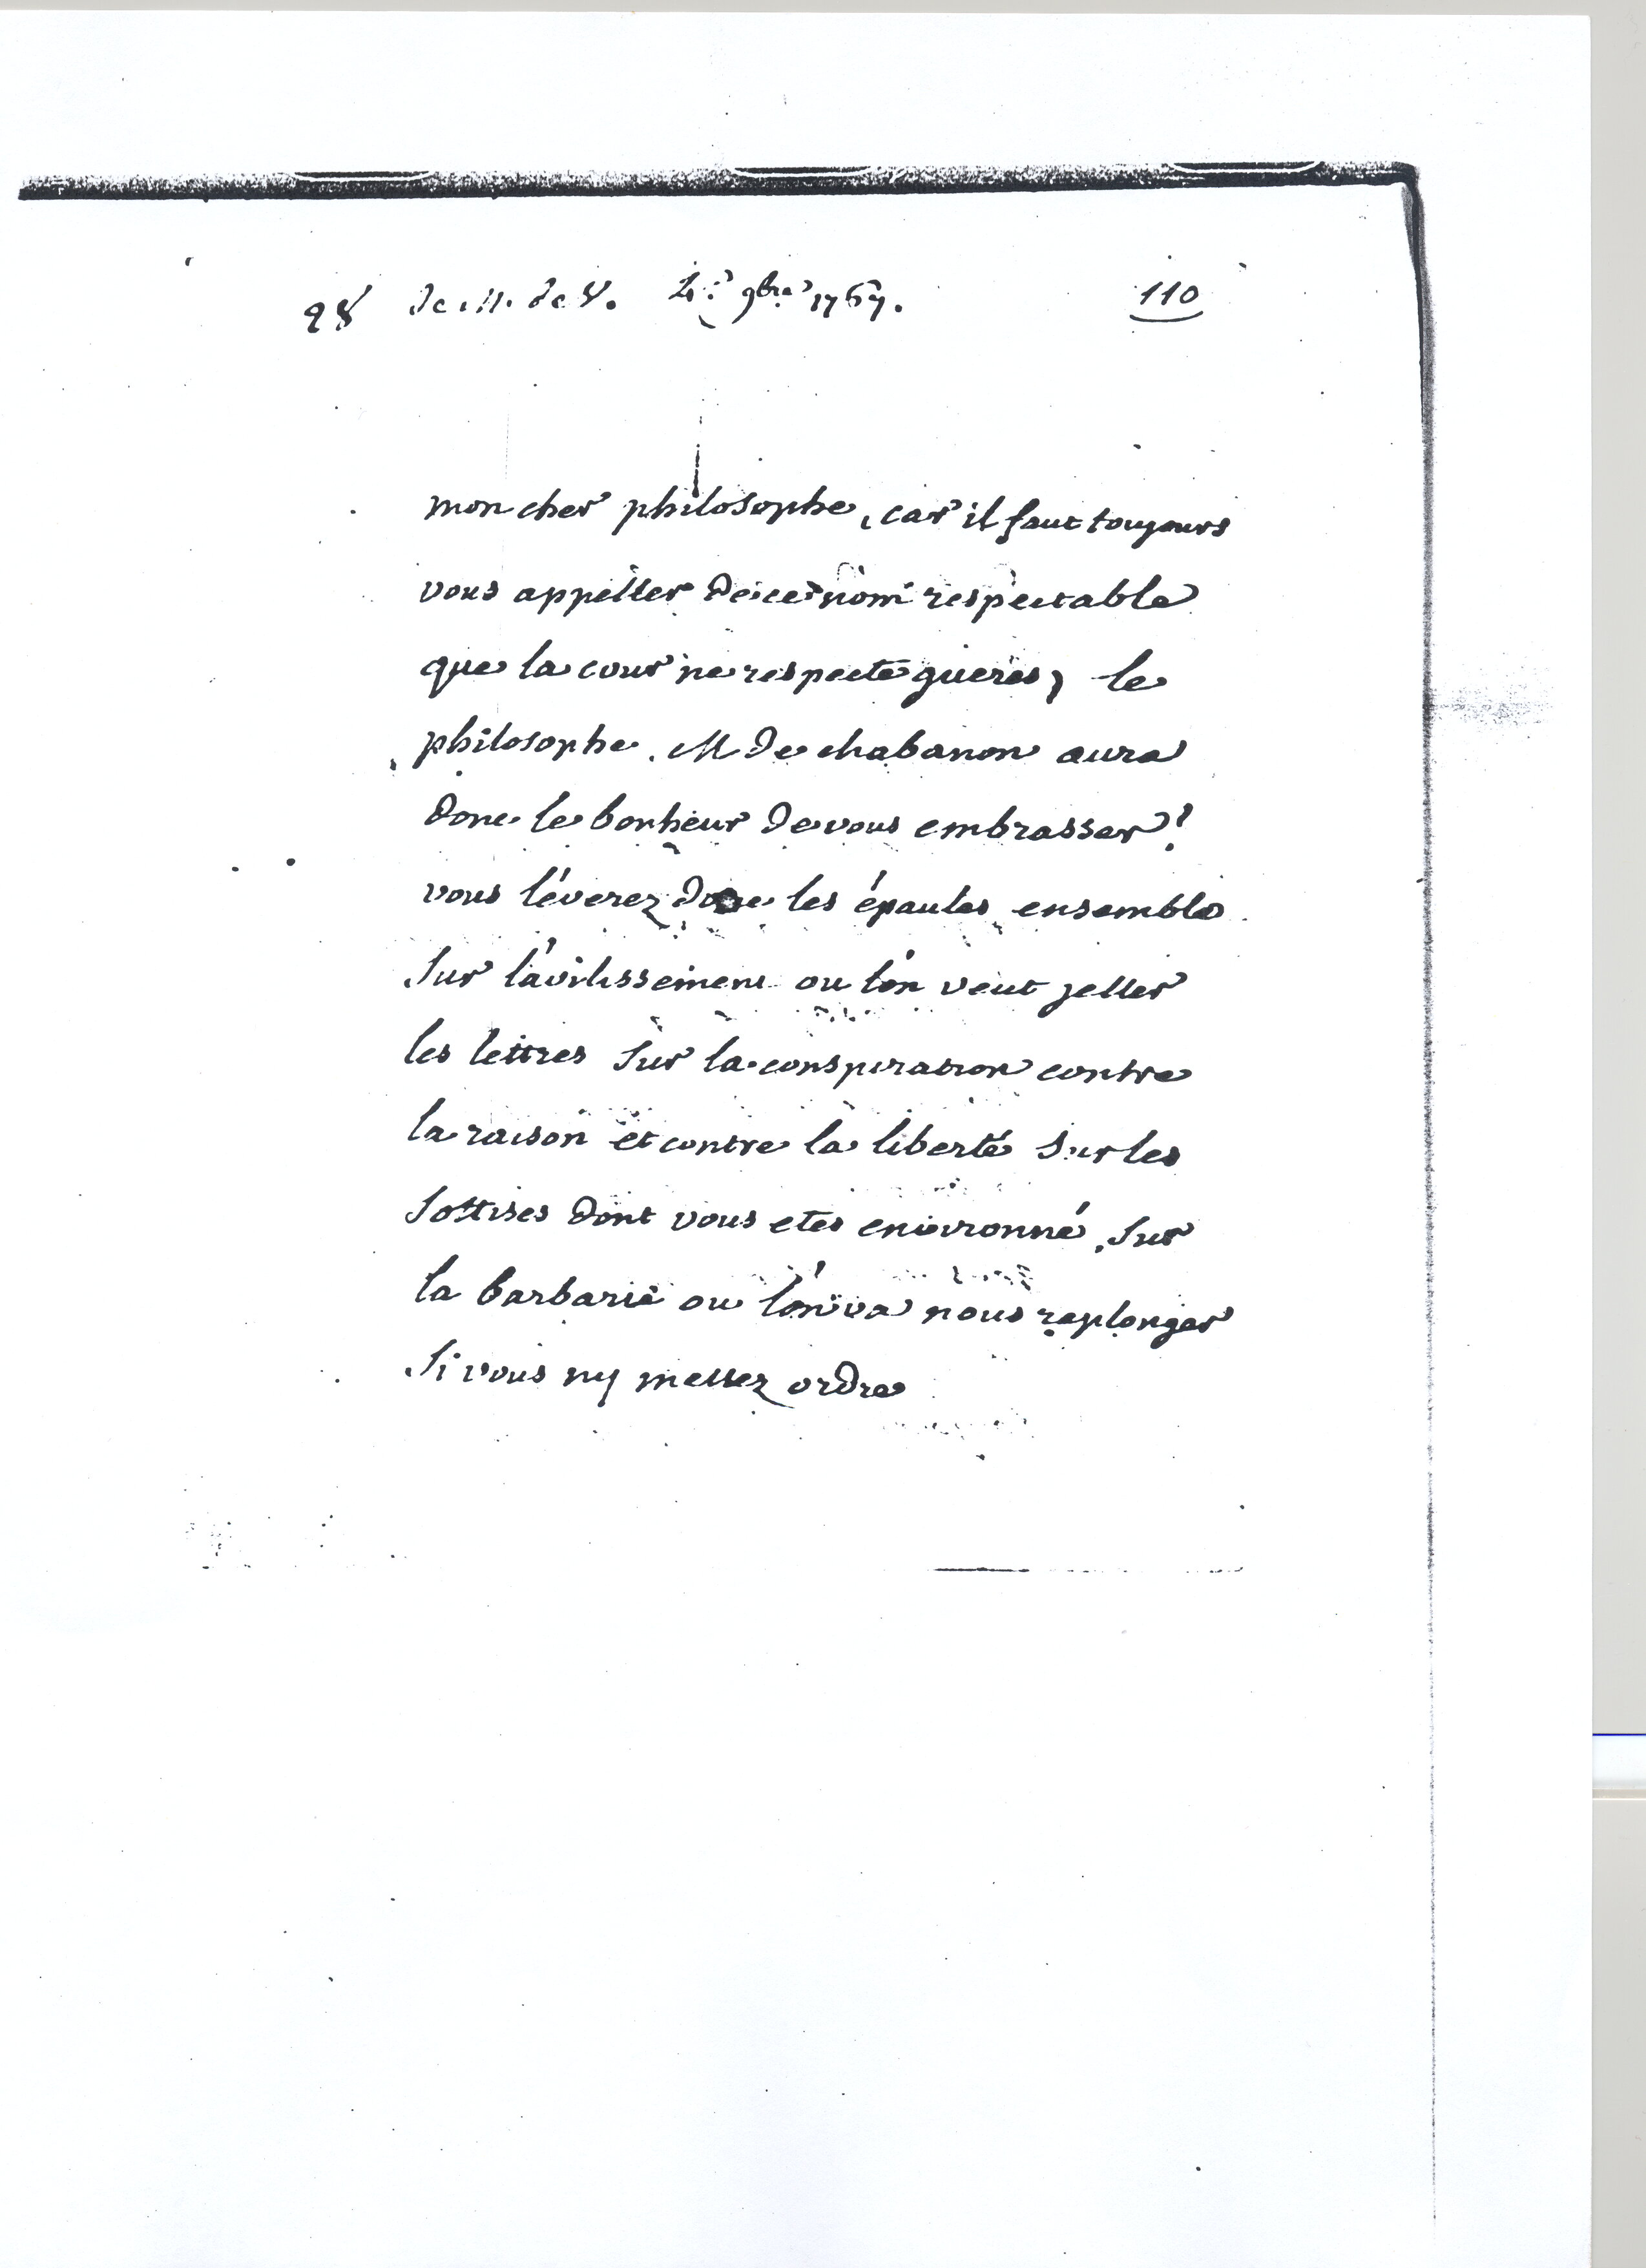 98 de M. de V. 9bre 1767. 110
mon cher philosophe, car il faut toujours
vous appeller de ce nom respectable
que la cour ne respecte gueres, le
philosophe. M de chabanon aura
donc le bonheur de vous embrasser!
vous léverez donc les épaules ensemble
Sur l'avilissement ou l'on veut jetter
les lettres Sur la conspiration contre
la raison et contre la liberté Sur les
Sottises dont vous etes environné, Sur
la barbarie ou l'on va nous replonger
Si vous ny mettez ordre